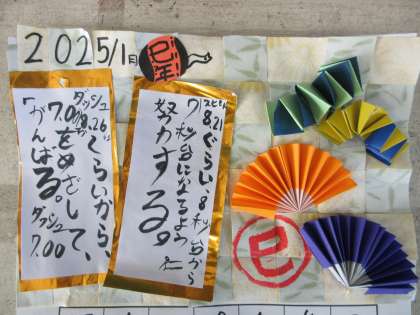 2025/1月
巳年
スピード
8.21ぐらい、8秒台から
7秒台になるように
努力する。
ダッシュ
8.26ぐらいから、
7.00をめざして、
がんばる。ダッシュ
7.00
巳